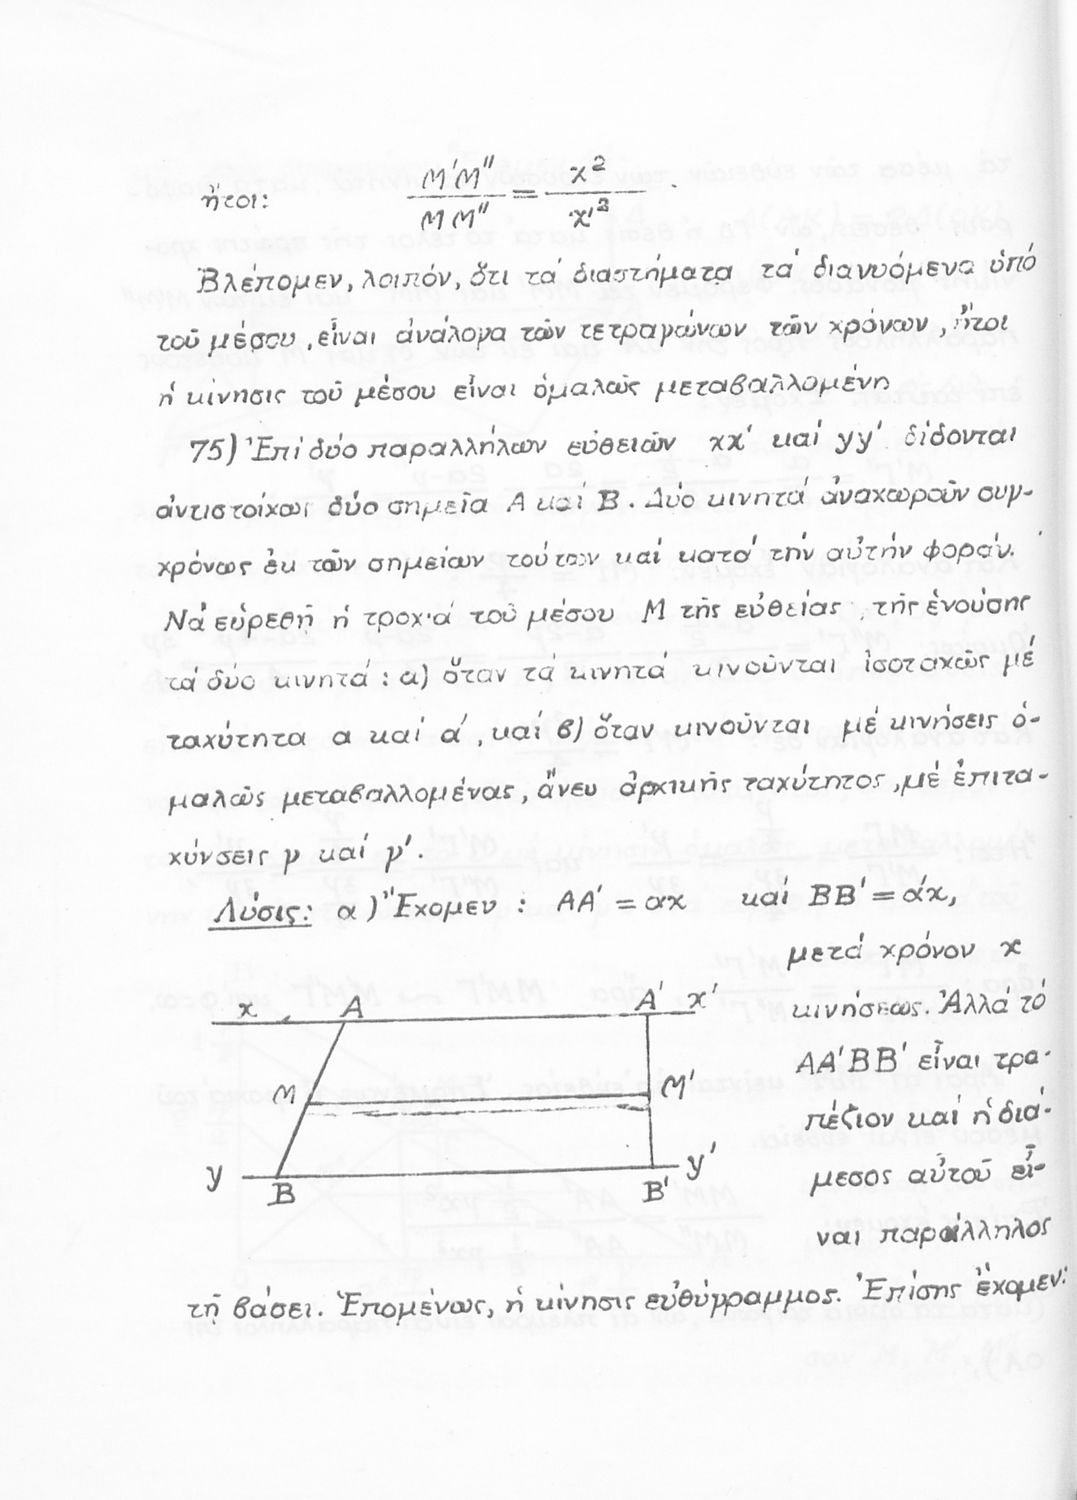 ἤτοι: Μ'Μ''/ΜΜ'' = x²/x'² .
Βλέπομεν, λοιπόν, ὅτι τά διαστήματα τά διανυόμενα ὑπό
τοῦ μέσου, εἶναι ἀνάλογα τῶν τετραγώνων τῶν χρόνων, ἤτοι
ἡ κίνησις τοῦ μέσου εἶναι ὁμαλῶς μεταβαλλομένη
75) Ἐπί δύο παραλλήλων εὐθειῶν xx' καί yy' δίδονται
ἀντιστοίχως δύο σημεῖα Α καί Β. Δύο κινητά ἀναχωροῦν συγ-
χρόνως ἐκ τῶν σημείων τούτων καί κατά τήν αὐτήν φοράν.
Νά εὑρεθῇ ἡ τροχιά τοῦ μέσου Μ τῆς εὐθείας, τῆς ἑνούσης
τά δύο κινητά: α) ὅταν τά κινητά κινοῦνται ἰσοταχῶς μέ
ταχύτητα α καί α', καί β) ὅταν κινοῦνται μέ κινήσεις ὁ-
μαλῶς μεταβαλλομένας, ἄνευ ἀρχικῆς ταχύτητος, μέ ἐπιτα-
χύνσεις γ καί γ'.
Λύσις: α) Ἔχομεν: ΑΑ' = αx καί ΒΒ' = α'x,
μετά χρόνον x
κινήσεως. Ἀλλά τό
ΑΑ'ΒΒ' εἶναι τρα-
πέζιον καί ἡ διά-
μεσος αὐτοῦ εἶ-
ναι παράλληλος
x A A' x'
M M'
y B B' y'
τῇ βάσει. Ἑπομένως, ἡ κίνησις εὐθύγραμμος. Ἐπίσης ἔχομεν: